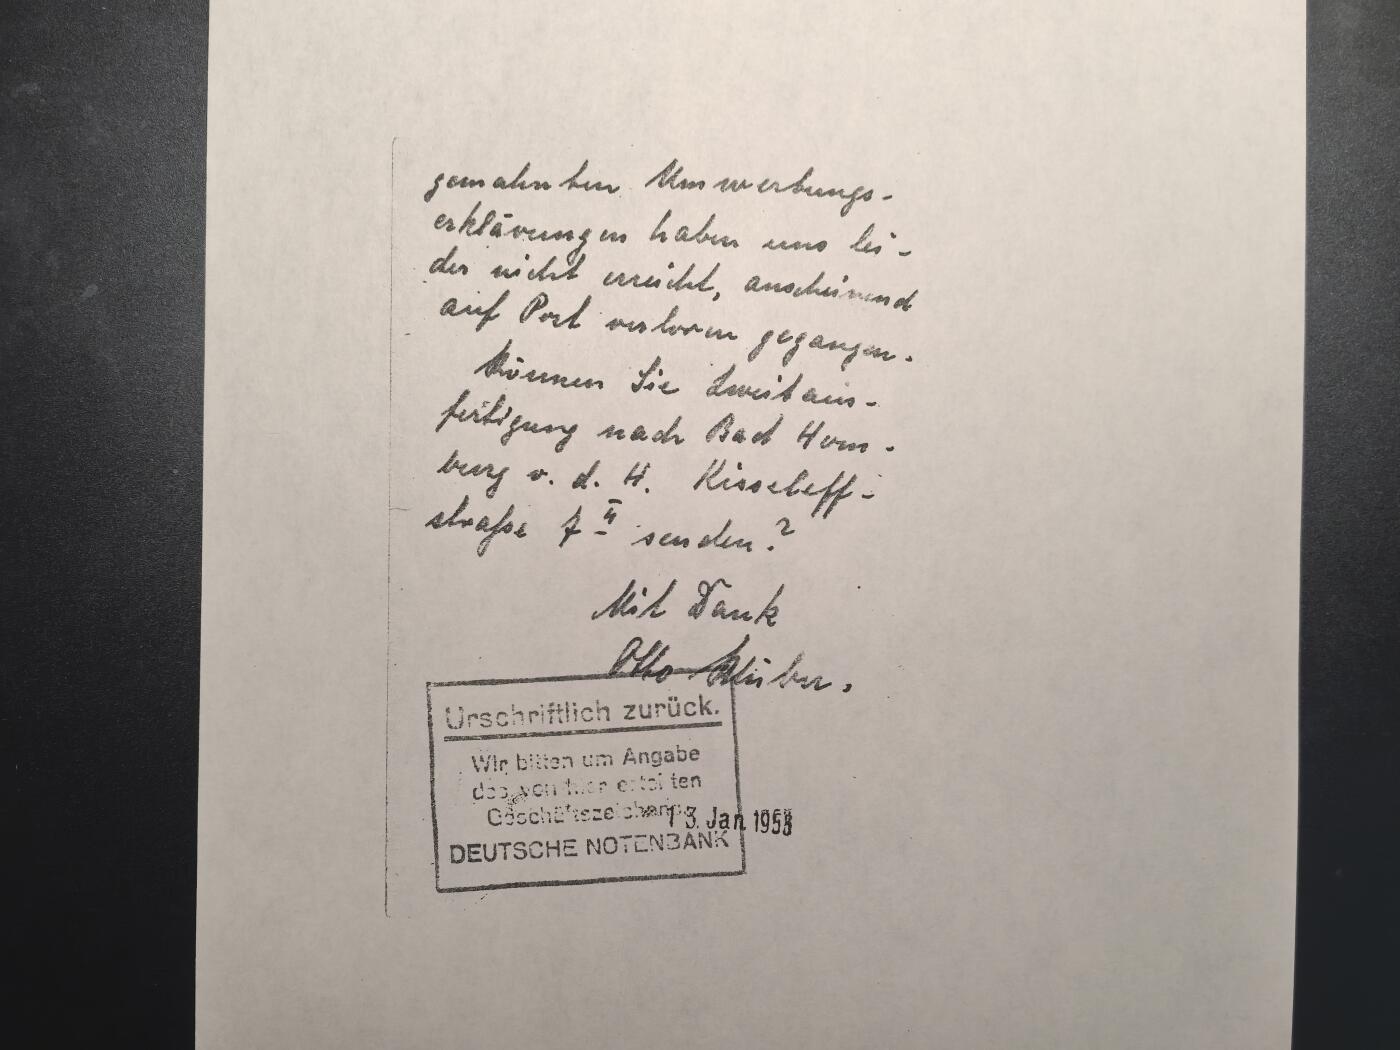 gemahnten Umwerbungs-
erklärungen haben uns lei-
der nicht erreicht, anscheinend
auf Post verloren gegangen.
Können Sie Zweitaus-
fertigung nach Bad Hom-
burg v. d. H. Kisseleff-
straße 7 II senden?
Mit Dank
Otto
Urschriftlich zurück.
Wir bitten um Angabe
des von hier erteilten
Geschäftszeichens
13. Jan 1953
DEUTSCHE NOTENBANK